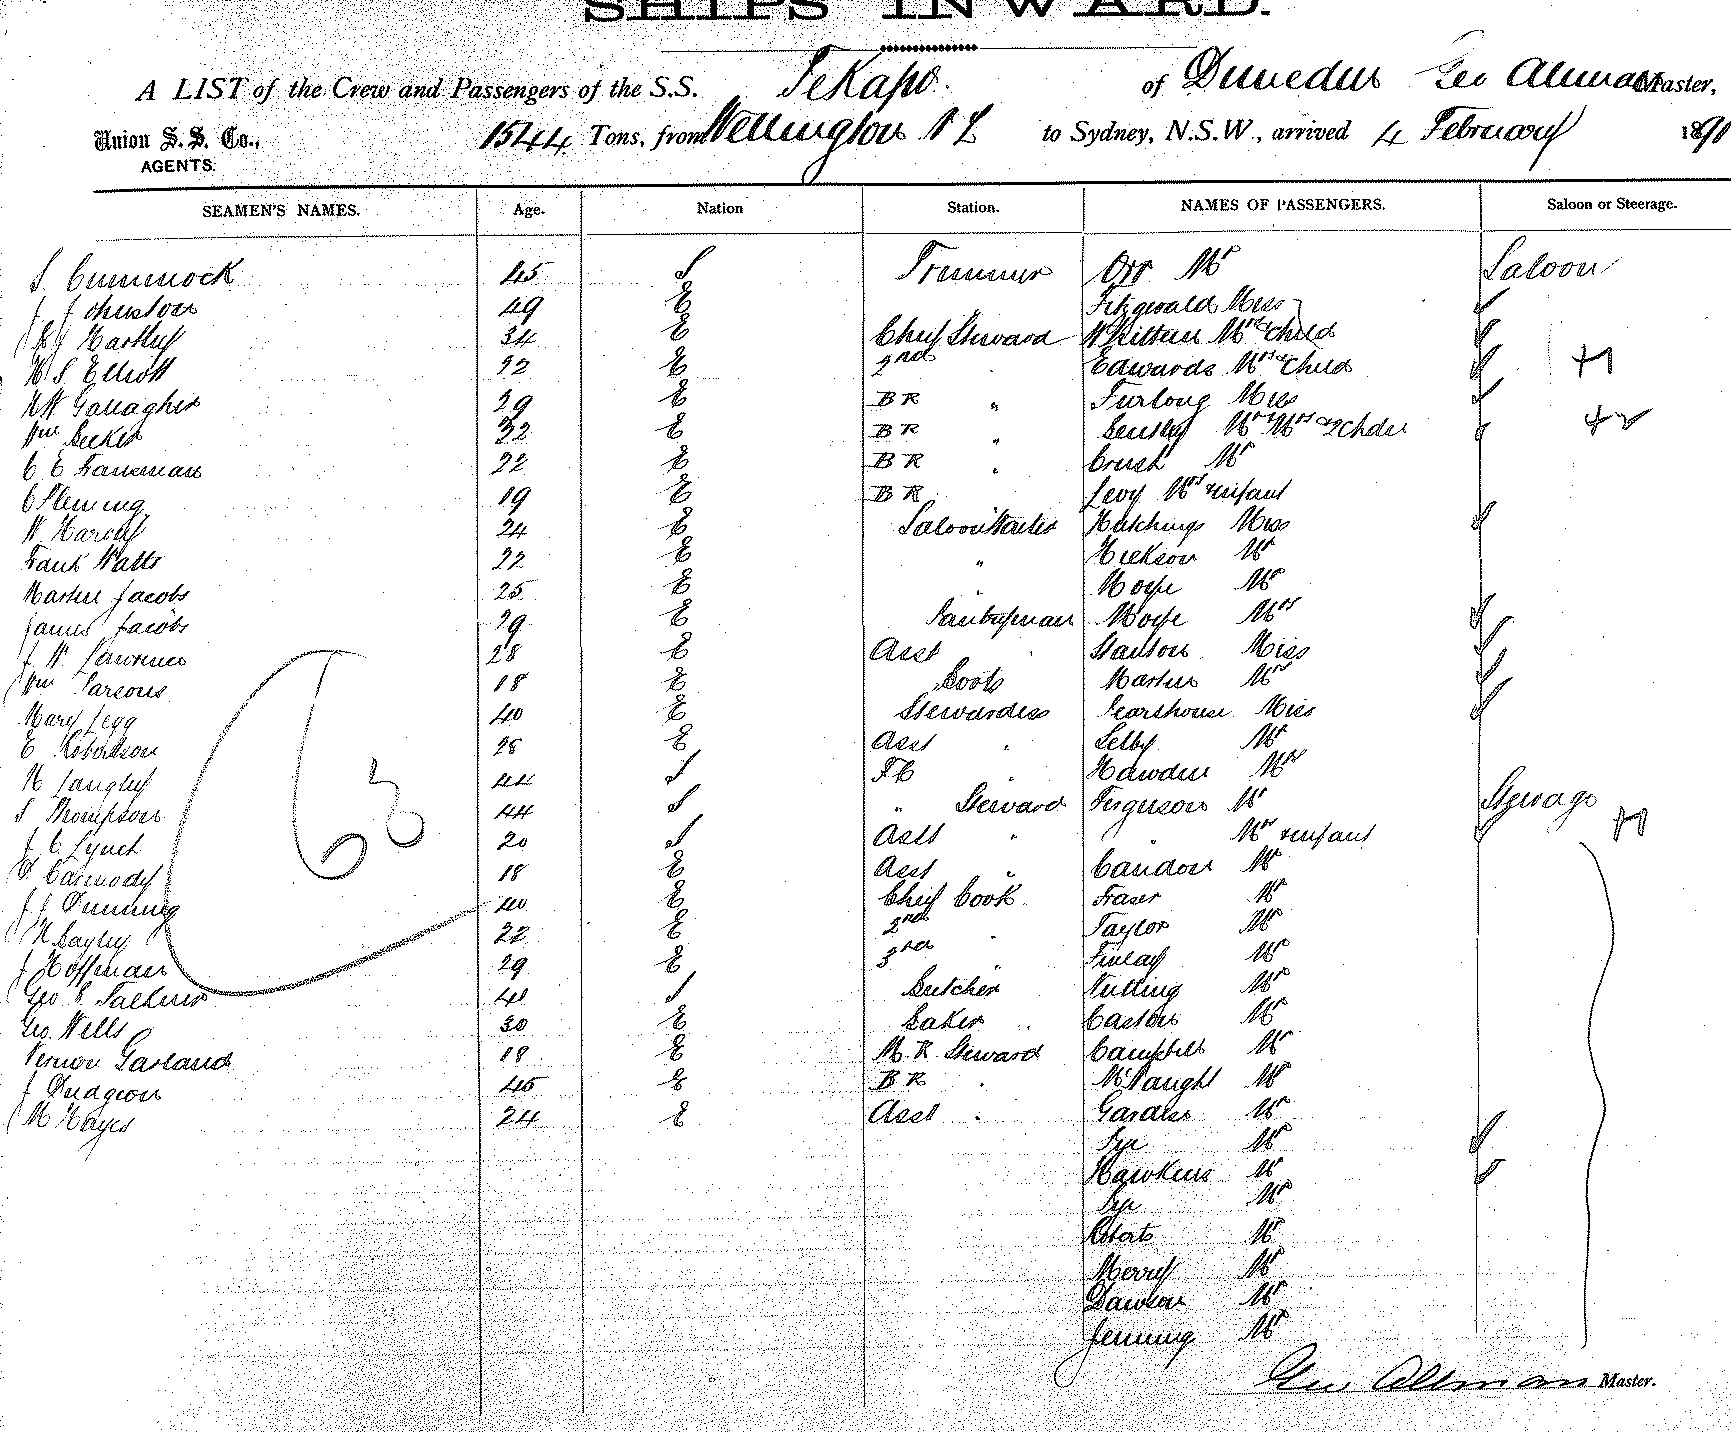 SHIPS INWARD.
A LIST of the Crew and Passengers of the S.S. TeKapo. of Dunedin Geo Allman Master,
Union S. S. Co., AGENTS. 1544 Tons, from Wellington N Z to Sydney, N.S.W., arrived 4 February 1890
SEAMEN'S NAMES. Age. Nation Station. NAMES OF PASSENGERS. Saloon or Steerage.
S. Cummock 45 S Trimmer Orr Mr Saloon
J Johnston 49 E Fitzgerald Miss
Hartley 34 E Chief Steward Whitten Mrs & Child
W S Elliott 22 E 2nd Edwards Mrs & Child
Gallagher 29 E B R " Furlong Miss
Wm 32 E B R " Mr Mrs & 2 Chdn
C E 22 E B R " Crush Mr
C Fleming 19 E B R Levy Mrs & infant
W Harvey 24 E Saloon Waiter Hutchings Miss
Frank Watts 22 E " Hickson Mr
Martin Jacobs 25 E Mr
James Jacobs 29 E Pantryman Mrs
J W Lawrence 28 E Asst Stanton Miss
Wm Parsons 18 E Boots Martin Mrs
Mary Legg 40 E Stewardess Pearshouse Miss
E Robertson 28 E Asst " Selby Mr
H Langley 44 S F C " Hawden Mrs
S Thompson 44 S " Steward Ferguson Mr Steerage
J C Lynch 20 S Asst " " Mrs & infant
Carmody 18 E Asst " Candon Mr
J J Dunning 40 E Chief Cook Fraser Mr
H Bayley 22 E 2nd " Taylor Mr
J Hoffman 29 E 3rd " Finlay Mr
Geo 40 S Butcher Nutting Mr
Geo. Wells 30 E Baker Mr
Vernon Garland 18 E M. R Steward Campbell Mr
J Dudgeon 45 E B R " McNaught Mr
M Hayes 24 E Asst " Mr
Pye Mr
Hawkins Mr
Pye Mr
Roberts Mr
Merry Mr
Dawson Mr
Jenning Mr
63
Geo Allman Master.